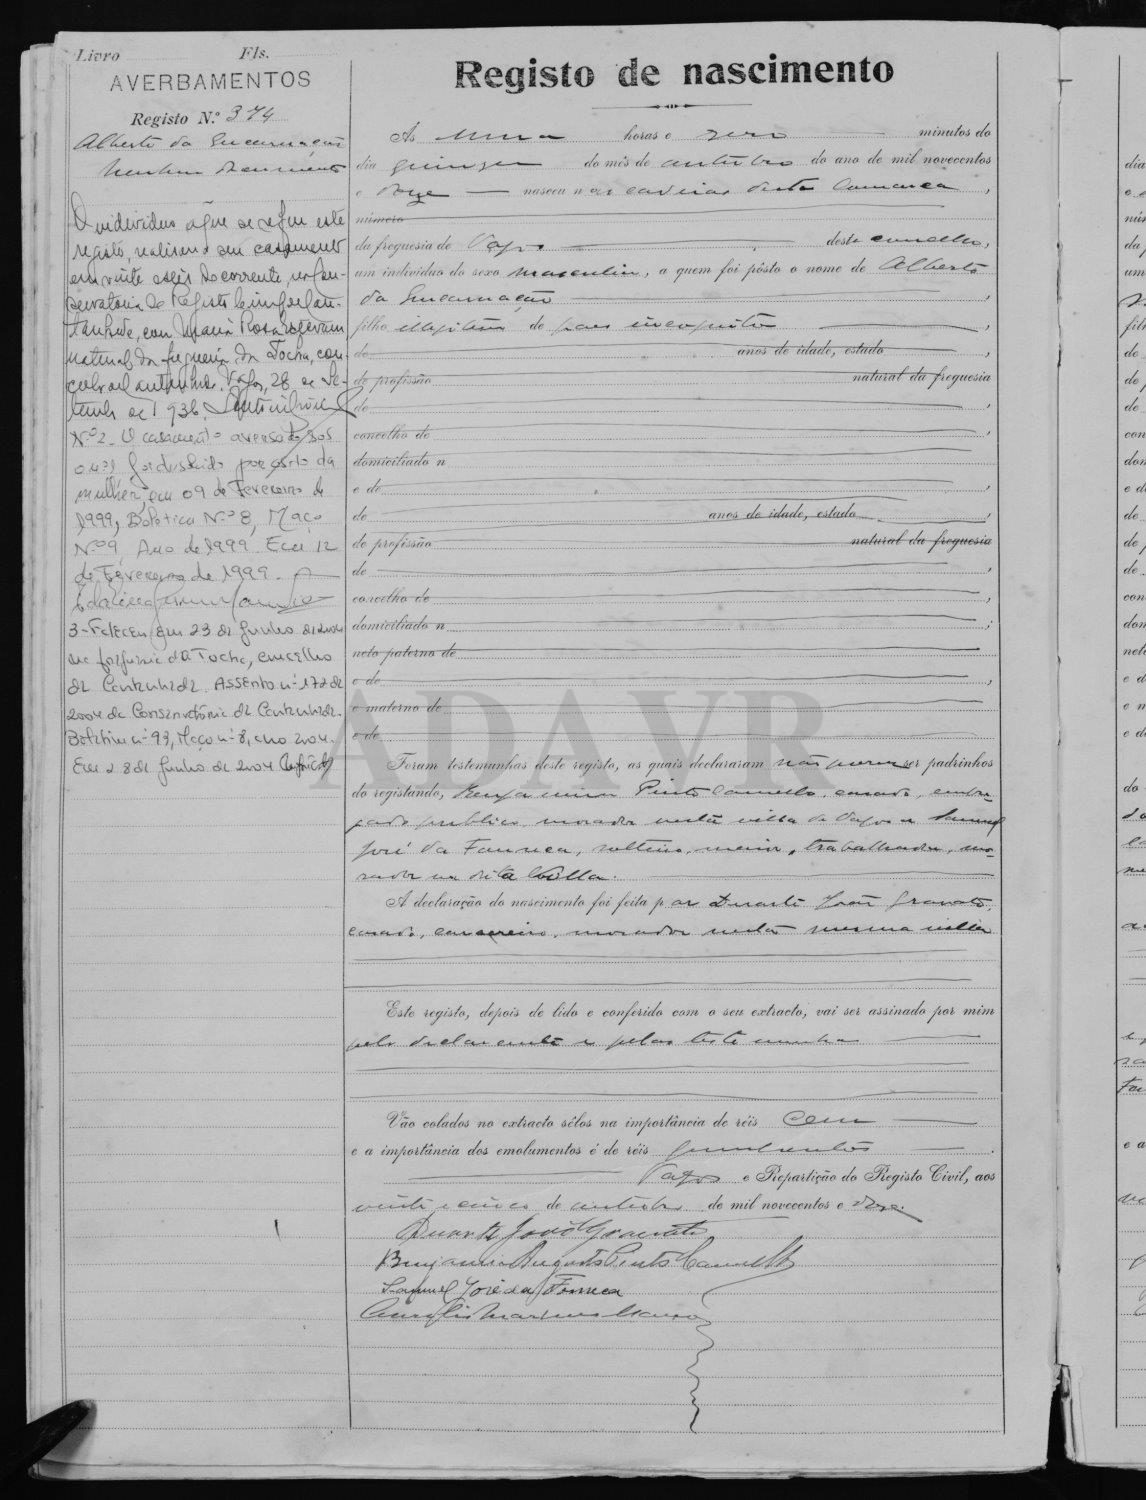 Livro Fls.
AVERBAMENTOS
Registo N.º 374
Alberto da Encarnação
O individuo a que se refere este
registo, realisou seu casamento
em vinte e seis do corrente, na Con-
servatoria do Registo Civil de Can-
tanhede, com Maria Rosa
natural da freguesia da Tocha, con-
celho de Cantanhede. Vagos, 28 de Se-
tembro de 1936.
N.º 2 - O casamento averbado sob
o n.º 1 foi dissolvido por óbito da
mulher, em 09 de Fevereiro de
1999, Boletim N.º 8, Maço
N.º 9, Ano de 1999. Em 12
de Fevereiro de 1999.
3 - Faleceu em 23 de Junho de 2004
na freguesia da Tocha, concelho
de Cantanhede. Assento n.º 172 de
2004 da Conservatória de Cantanhede.
Boletim n.º 93, Maço n.º 8, ano 2004.
Em 28 de Junho de 2004
Registo de nascimento
Ás uma horas e zero minutos do
dia quinze do mês de outubro do ano de mil novecentos
e doze nasceu n as cadeias desta comarca,
número
da freguesia de Vagos deste concelho,
um individuo do sexo masculino, a quem foi pôsto o nome de Alberto
da Encarnação,
filho illegitimo de paes incognitos,
de anos de idade, estado,
de profissão natural da freguesia
de,
concelho de,
domiciliado n
e de,
de anos de idade, estado,
de profissão natural da freguesia
de,
concelho de,
domiciliado n;
neto paterno de
e de,
e materno de
e de
Foram testemunhas dêste registo, as quais declararam não querer ser padrinhos
do registando, Benjamim Pinto Camello, casado, empre-
gado publico, morador nesta villa de Vagos e Samuel
José da Fonseca, solteiro, maior, trabalhador, mo-
rador na dita villa.
A declaração do nascimento foi feita p or Duarte João Gravato,
casado, carcereiro, morador nesta mesma villa
Este registo, depois de lido e conferido com o seu extracto, vai ser assinado por mim
pelo declarante e pelas testemunhas
Vão colados no extracto sêlos na importância de réis Cem
e a importância dos emolumentos é de réis quinhentos.
Vagos e Repartição do Registo Civil, aos
vinte e cinco de outubro de mil novecentos e doze.
Duarte João Gravato
Benjamim Augusto Pinto Camello
Samuel José da Fonseca
ADAVR